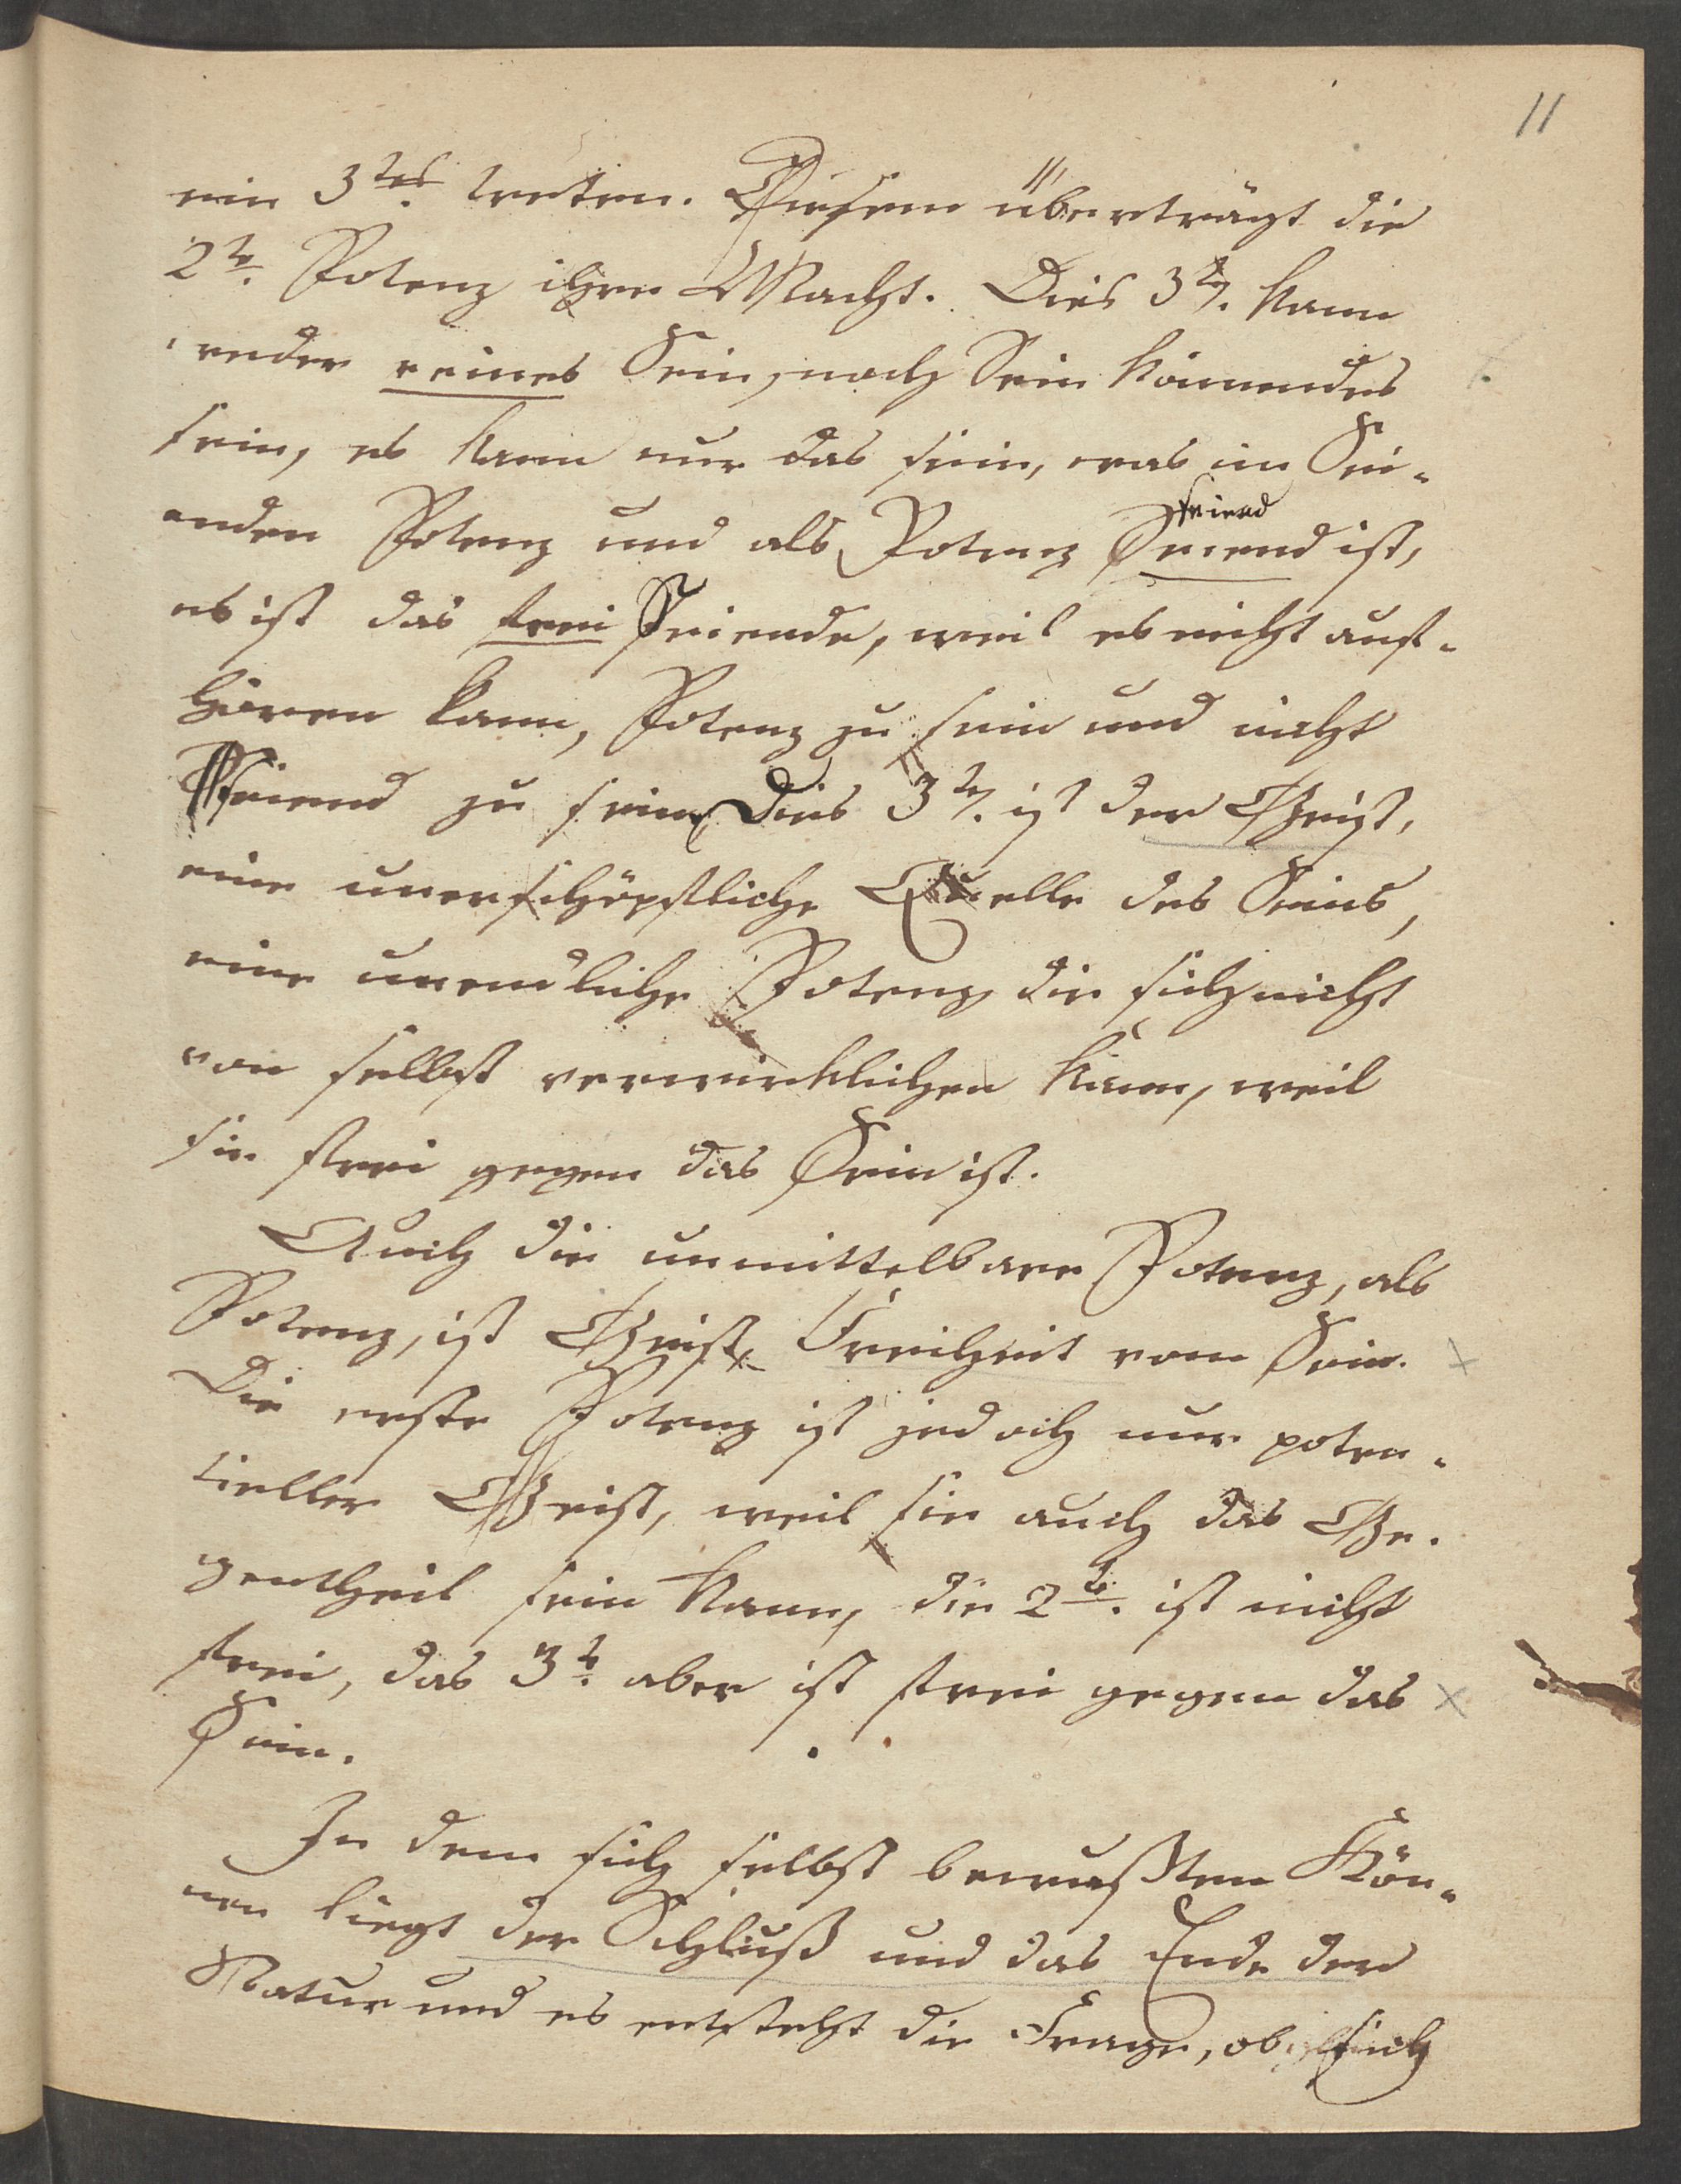 11
ein 3tes. treten. Diesem überträgt die
2te. Potenz ihre Macht. Dies 3te. kann
weder reines Sein, noch Sein könnendes
sein, es kann nur das sein, was im Sei-
enden Potenz und als Potenz Seiend ist,
seiend
es ist das frei Seiende, weil es nicht auf-
hören kann, Potenz zu sein und nicht
Seiend zu sein. Dies 3te. ist der Geist,
eine unerschöpfliche Quelle des Seins,
eine unendliche Potenz, die sich nicht
von selbst verwirklichen kann, weil
sie frei gegen das Sein ist.
Auch die unmittelbare Potenz, als
Potenz, ist Geist, Freiheit vom Sein.
Die erste Potenz ist jedoch nur poten-
tieller Geist, weil sie auch das Ge-
gentheil sein kann, die 2te. ist nicht
frei, das 3te. aber ist frei gegen das
Sein.
In dem sich selbst bewußten Kön-
nen liegt der Schluß und das Ende der
Natur und es entsteht die Frage, ob sich